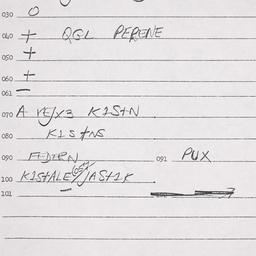 030 O
040 + QGL PERENE
050 +
060 +
061 —
070 A VE/X3 K1S+N
080 K1S+NS
090 FEDERN 091 PUX
100 K1S+ALE/JAS+1K
101 —